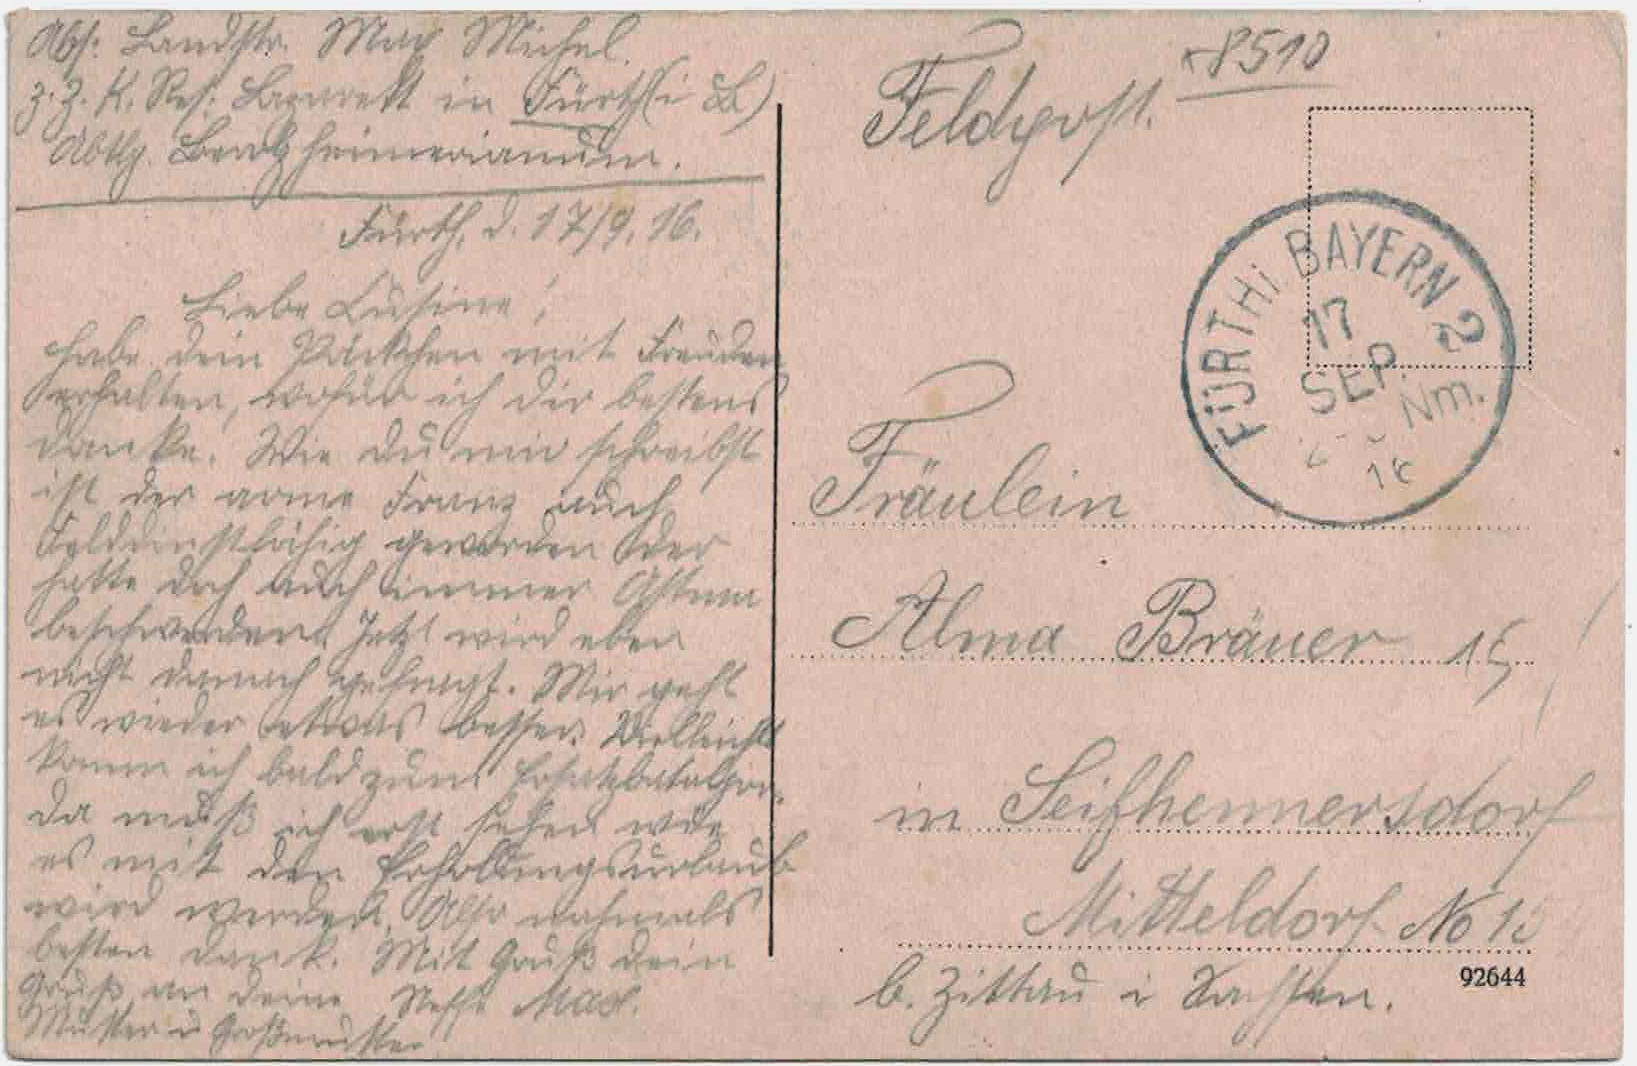 Abs: Landstr. Max Michel.
z. Z. K. Res. Lazarett in Fürth (i B)
Abtlg. Berolzheimerianum.
Fürth, d. 17/9. 16.
Liebe Cusine!
habe dein Päckchen mit Freuden
erhalten, wofür ich dir bestens
danke. Wie du mir schreibst
ist der arme Franz auch
Felddinstfähig geworden der
hatte doch auch immer Astma
beschwerden. Jetzt wird eben
nicht danach gefragt. Mir geht
es wieder etwas besser. Vielleicht
komm ich bald zum Ersatzbatalion.
da muß ich erst sehen wie
es mit den Erholungsurlaub
wird werden. Also nahmals
besten dank. Mit Gruß dein
Gruß an deine Max.
Mutter u Großmutter
Feldpost.
8510
FÜRTH i. BAYERN 2
17
SEP.
Nm.
16
Fräulein
Alma Bräuer 15
in Seifhennersdorf
Mitteldorf No 15
92644
b. Zittau i Sachsen.